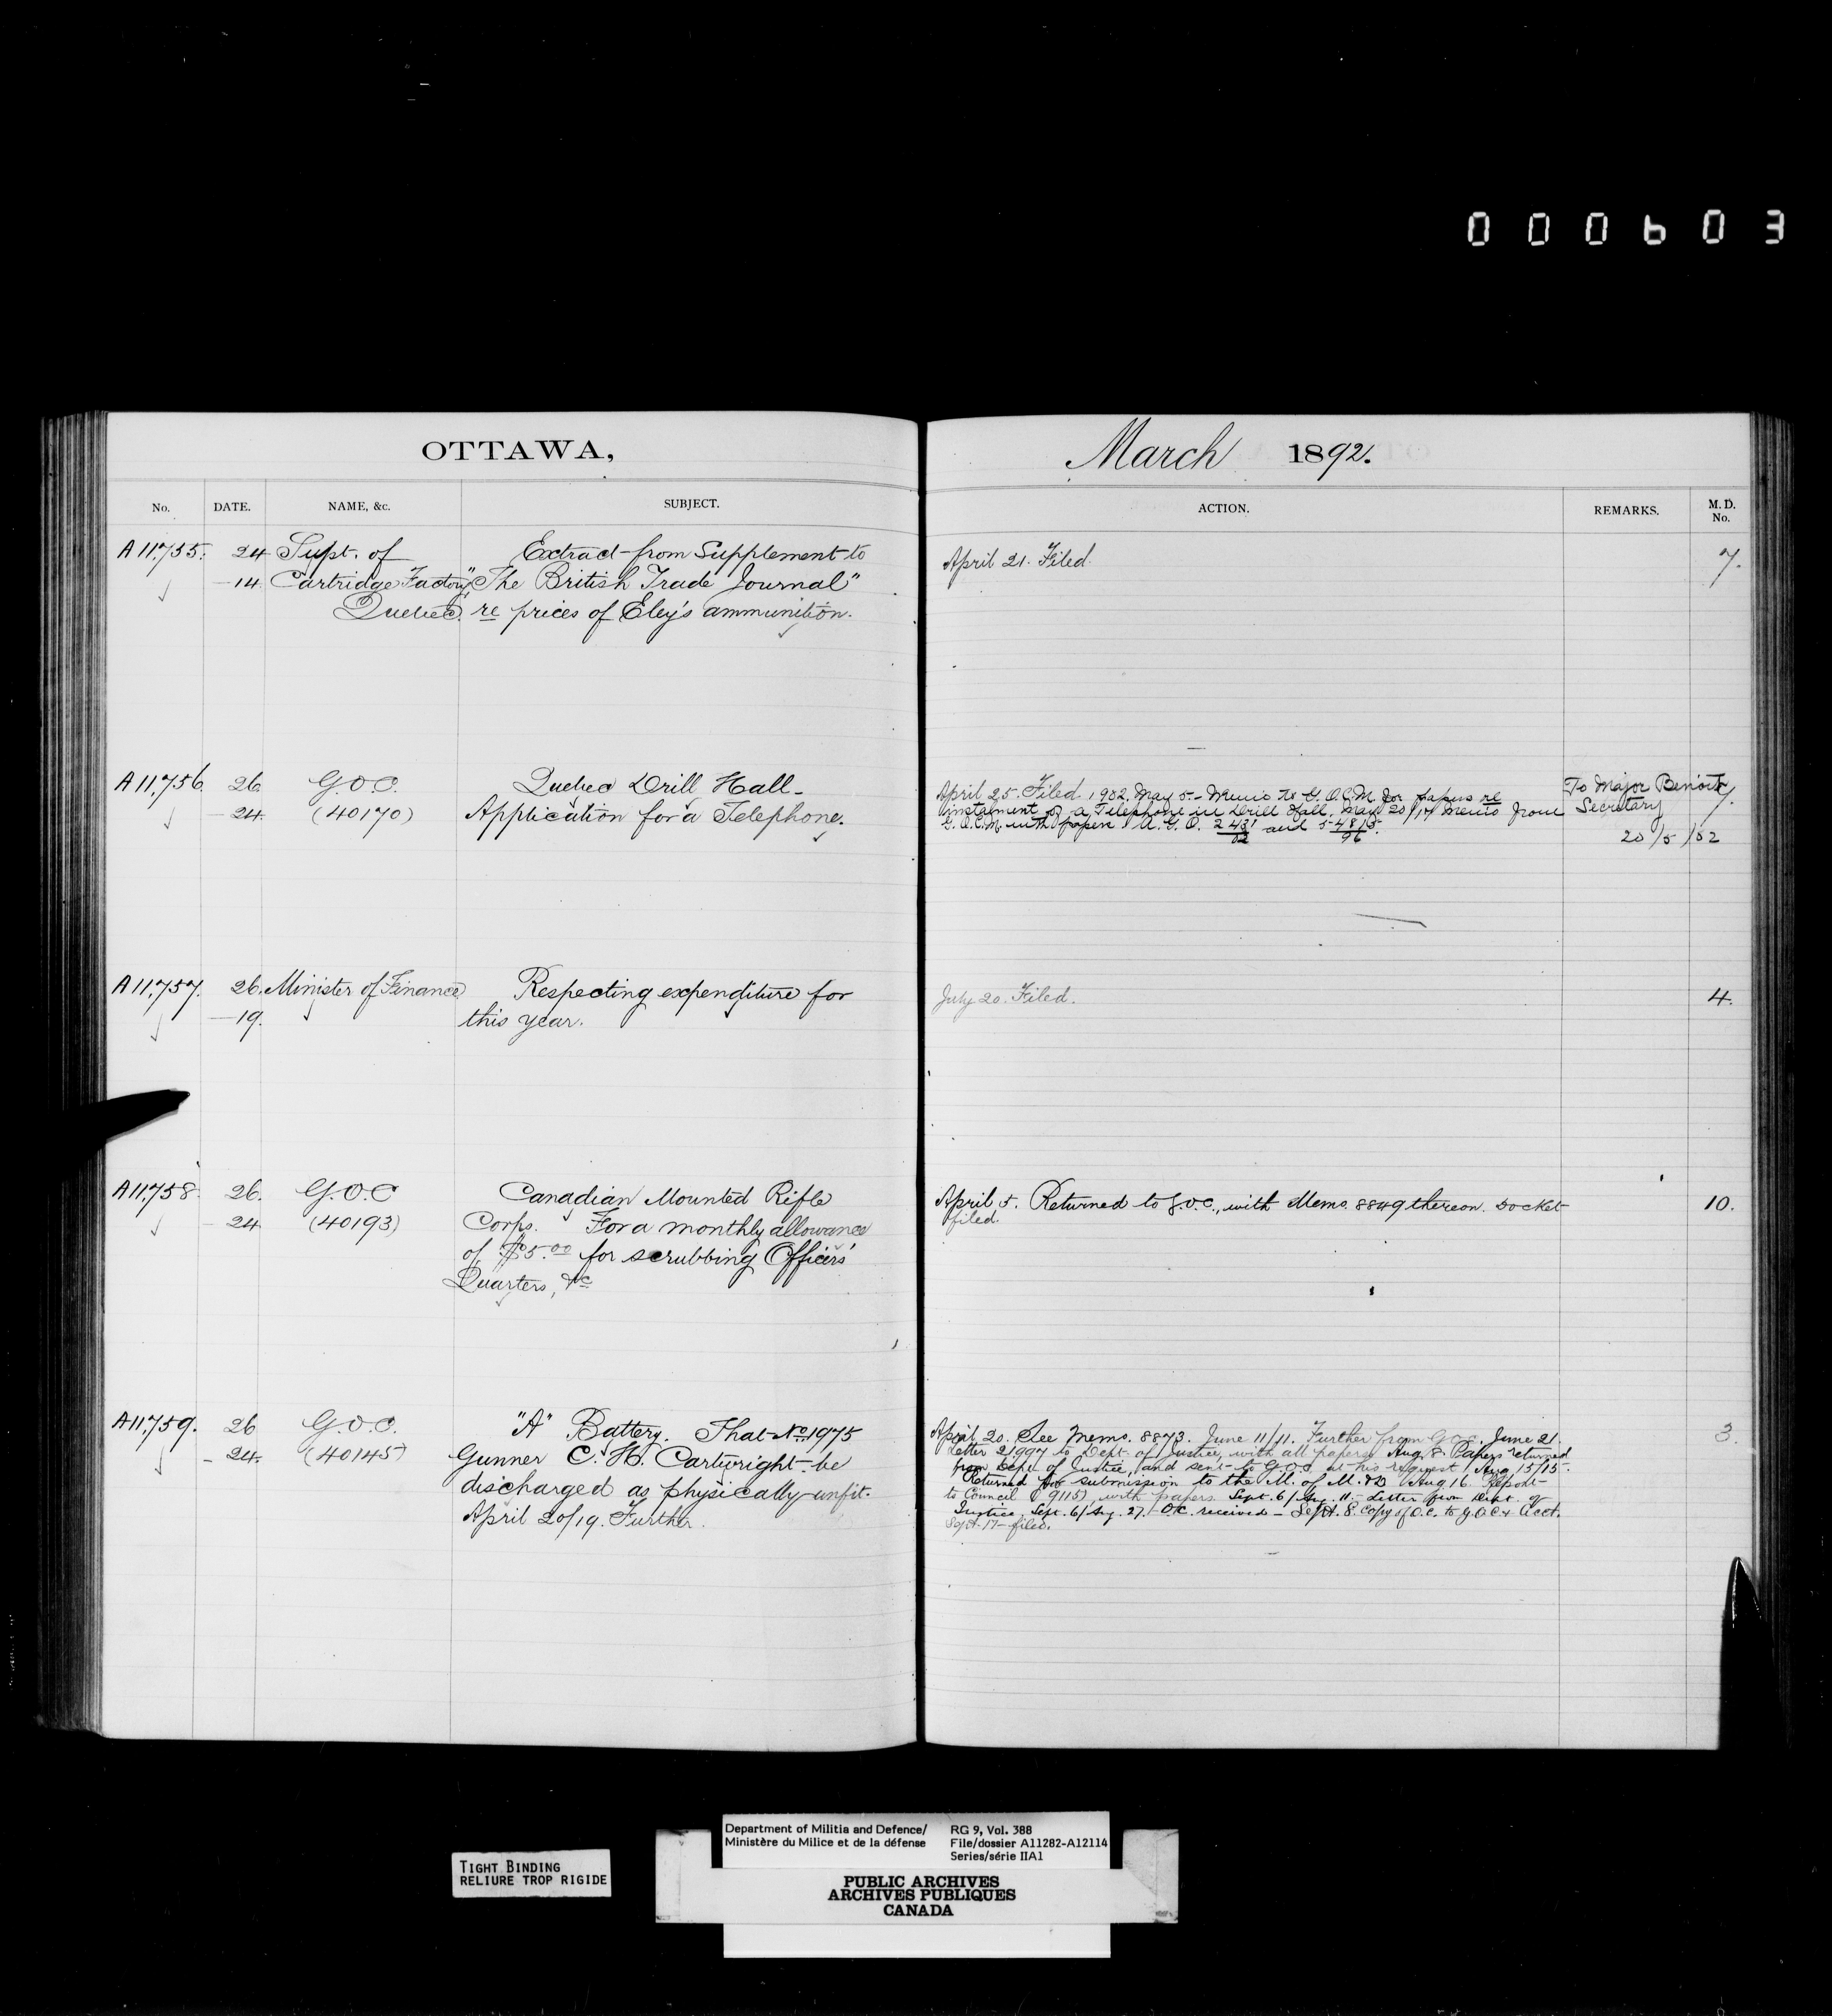 000603
OTTAWA,
March 1892.
No. DATE. NAME, &c. SUBJECT. ACTION. REMARKS. M.D. No.
A11,755. 24 Supt. of Extract from Supplement to April 21. Filed. 7.
14. Cartridge Factory, "The British Trade Journal"
Quebec. re prices of Eley's ammunition.
A11,756. 26 G.O.C. Quebec Drill Hall-
24. (40170) Application for a Telephone.
April 25. Filed. 1902. May 5- Memo to G.O.C.M. for papers re
instalment of a Telephone in Drill Hall. May 20/14 Memo from
G.O.C.M. with papers A.G.O. and
To Major Benoit
Secretary
20/5/02
7.
A11,757. 26. Minister of Finance Respecting expenditure for July 20. Filed. 4.
19. this year.
A11,758. 26. G.O.C Canadian Mounted Rifle
24 (40193) Corps. For a monthly allowance
of $5.00 for scrubbing Officers'
Quarters, &c
April 5. Returned to G.O.C., with Memo. 8849 thereon. Docket
filed.
10.
A11,759. 26 G.O.C. "A" Battery. That No 1975
24. (40145) Gunner C. H. Cartwright be
discharged as physically unfit.
April 20/19. Further.
April 20. See Memo. 8873. June 11/11. Further from G.O.C. June 21.
Letter 21997 to Dept. of Justice, with all papers. Aug. 8. Papers returned
from Dept. of Justice, and sent to G.O.C. at his request. Aug 15/15.
Returned for submission to the M. of M. & D. Aug 16. Report
to Council (9115), with papers. Sept. 6/Aug. 11.- Letter from Dept. of
Justice. Sept. 6/Aug. 27. O.C. received - Sept. 8. Copy of O.C. to G.O.C & Acct.
Sept. 17- filed.
3.
TIGHT BINDING
RELIURE TROP RIGIDE
Department of Militia and Defence/ RG 9, Vol. 388
Ministère du Milice et de la défense File/dossier A11282-A12114
Series/série IIA1
PUBLIC ARCHIVES
ARCHIVES PUBLIQUES
CANADA